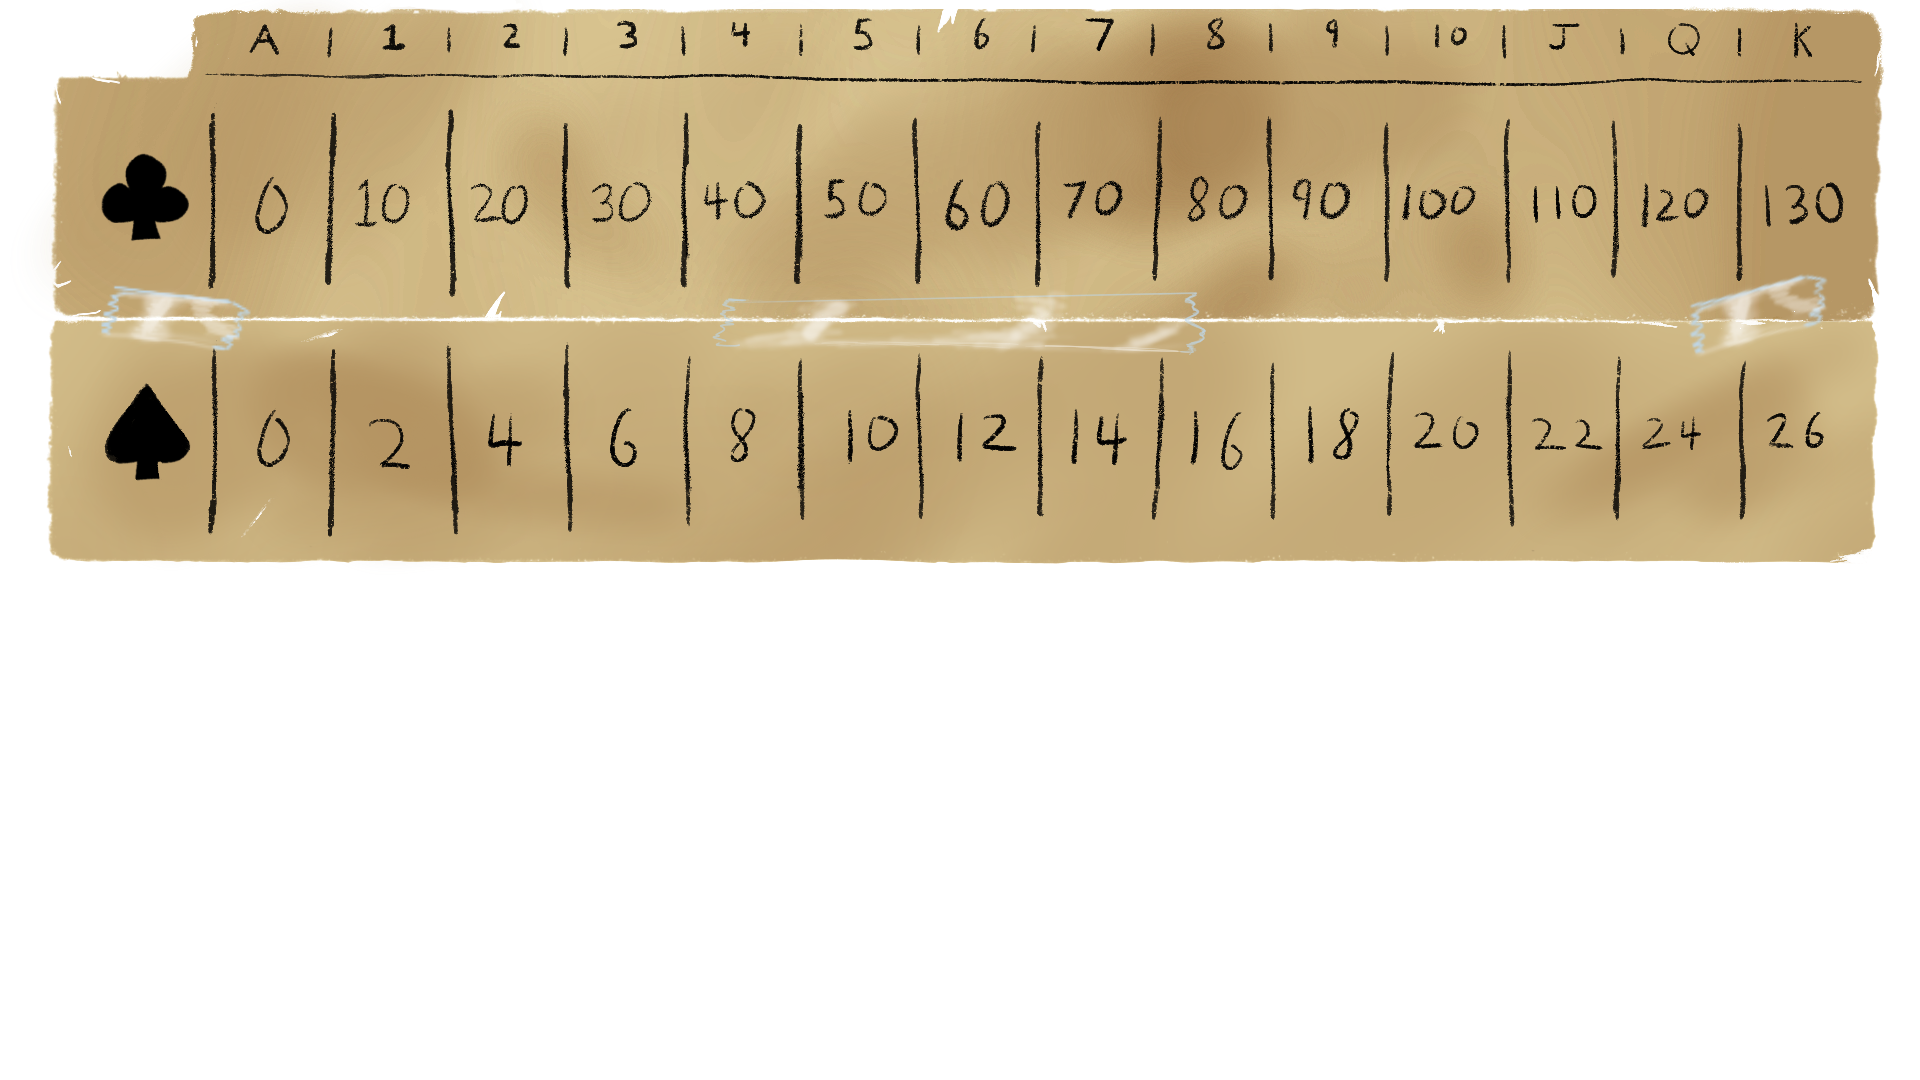 A | 1 | 2 | 3 | 4 | 5 | 6 | 7 | 8 | 9 | 10 | J | Q | K
♣ | 0 | 10 | 20 | 30 | 40 | 50 | 60 | 70 | 80 | 90 | 100 | 110 | 120 | 130
♠ | 0 | 2 | 4 | 6 | 8 | 10 | 12 | 14 | 16 | 18 | 20 | 22 | 24 | 26